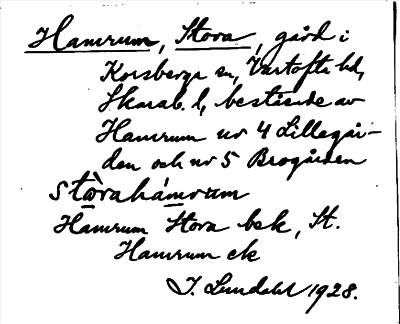 Hamrum, Stora, gård i
Korsberga sn, Vartofta hd,
Skarab. l, bestående av
Hamrum nr 4 Lillegår-
den och nr 5 Brogården
stòrahámrum
Hamrum Stora bek, St.
Hamrum ek
I. Lundahl 1928.